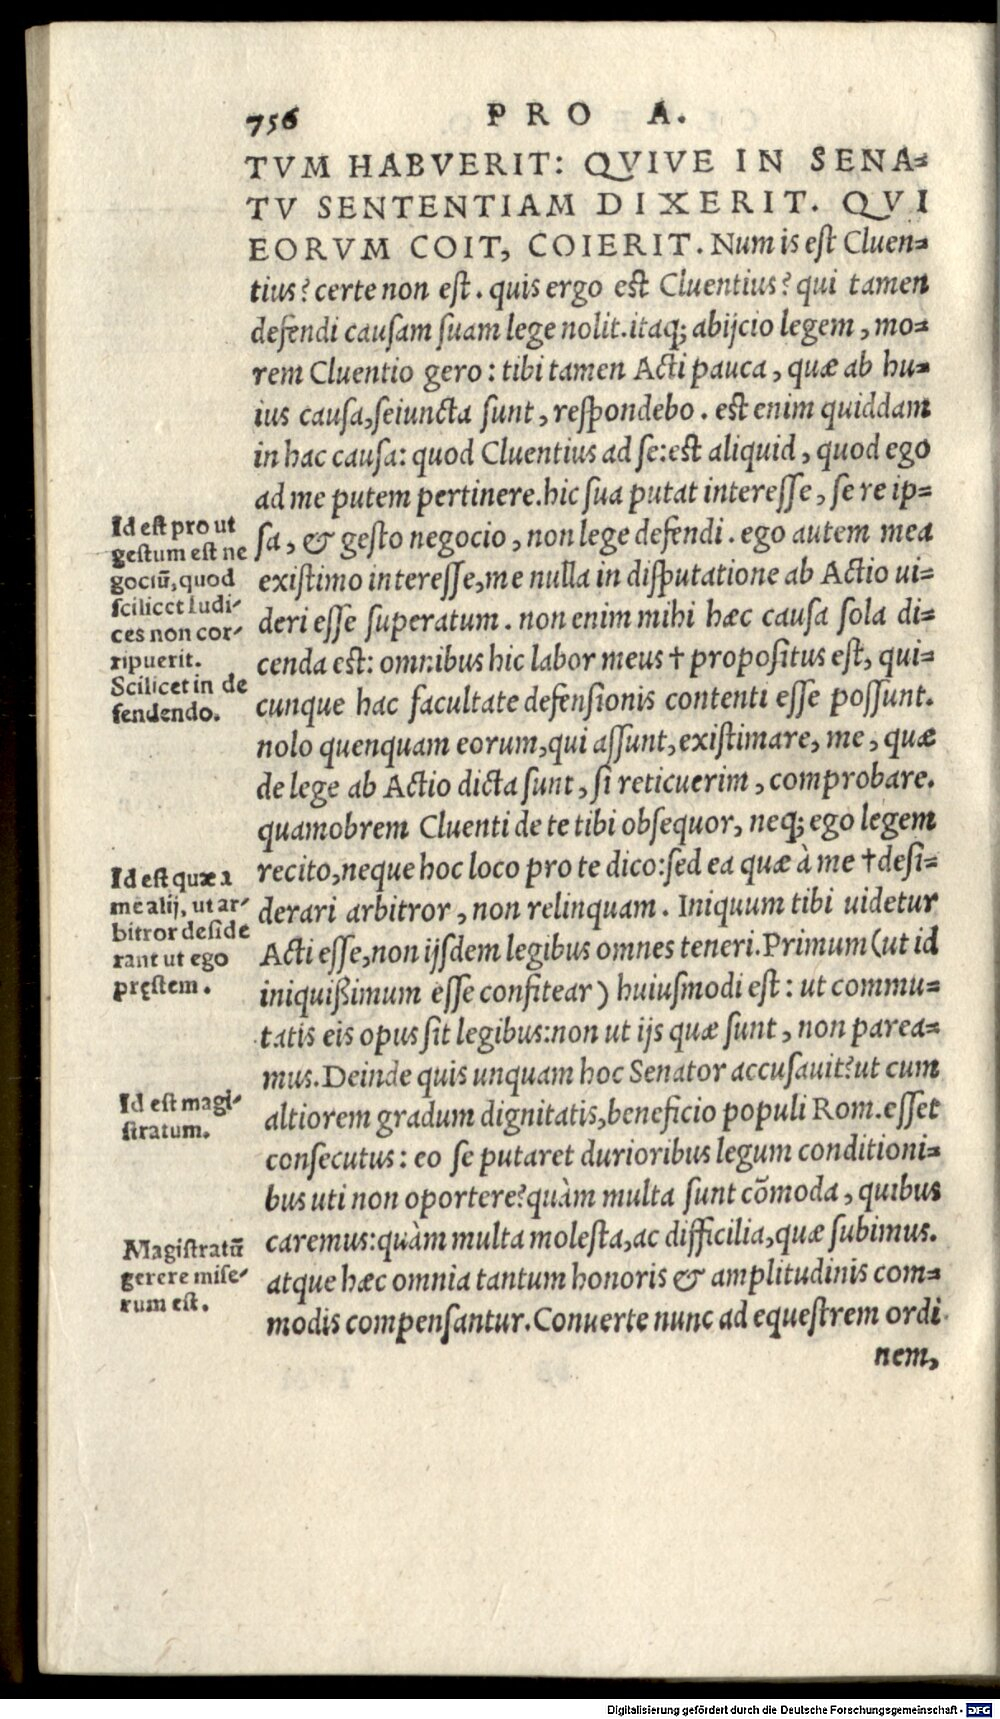 756 PRO A.
TVM HABVERIT: QVIVE IN SENA=
TV SENTENTIAM DIXERIT. QVI
EORVM COIT, COIERIT. Num is eſt Cluen=
tius? certe non eſt. quis ergo eſt Cluentius? qui tamen
defendi cauſam ſuam lege nolit. itaq; abijcio legem, mo=
rem Cluentio gero: tibi tamen Acti pauca, quæ ab hu=
ius cauſa, ſeiuncta ſunt, reſpondebo. eſt enim quiddam
in hac cauſa: quod Cluentius ad ſe: eſt aliquid, quod ego
ad me putem pertinere. hic ſua putat intereſſe, ſe re ip=
ſa, & geſto negocio, non lege defendi. ego autem mea
exiſtimo intereſſe, me nulla in diſputatione ab Actio ui=
deri eſſe ſuperatum. non enim mihi hæc cauſa ſola di=
cenda eſt: omnibus hic labor meus † propoſitus eſt, qui=
cunque hac facultate defenſionis contenti eſſe poſſunt.
nolo quenquam eorum, qui aſſunt, exiſtimare, me, quæ
de lege ab Actio dicta ſunt, ſi reticuerim, comprobare.
quamobrem Cluenti de te tibi obſequor, neq; ego legem
recito, neque hoc loco pro te dico: ſed ea quæ à me † deſi=
derari arbitror, non relinquam. Iniquum tibi uidetur
Acti eſſe, non ijſdem legibus omnes teneri. Primum (ut id
iniquißimum eſſe confitear) huiuſmodi eſt: ut commu=
tatis eis opus ſit legibus: non ut ijs quæ ſunt, non parea=
mus. Deinde quis unquam hoc Senator accuſauit? ut cum
altiorem gradum dignitatis, beneficio populi Rom. eſſet
conſecutus: eo ſe putaret durioribus legum conditioni=
bus uti non oportere? quàm multa ſunt cõmoda, quibus
caremus: quàm multa moleſta, ac difficilia, quæ ſubimus.
atque hæc omnia tantum honoris & amplitudinis com=
modis compenſantur. Conuerte nunc ad equeſtrem ordi
nem,
Id eſt pro ut
geſtum eſt ne
gociũ, quod
ſcilicet Iudi-
ces non cor-
ripuerit.
Scilicet in de
fendendo.
Id eſt quæ a
me alij, ut ar-
bitror deſide
rant ut ego
pręſtem.
Id eſt magi-
ſtratum.
Magiſtratũ
gerere miſe-
rum eſt.
Digitalisierung gefördert durch die Deutsche Forschungsgemeinschaft - DFG